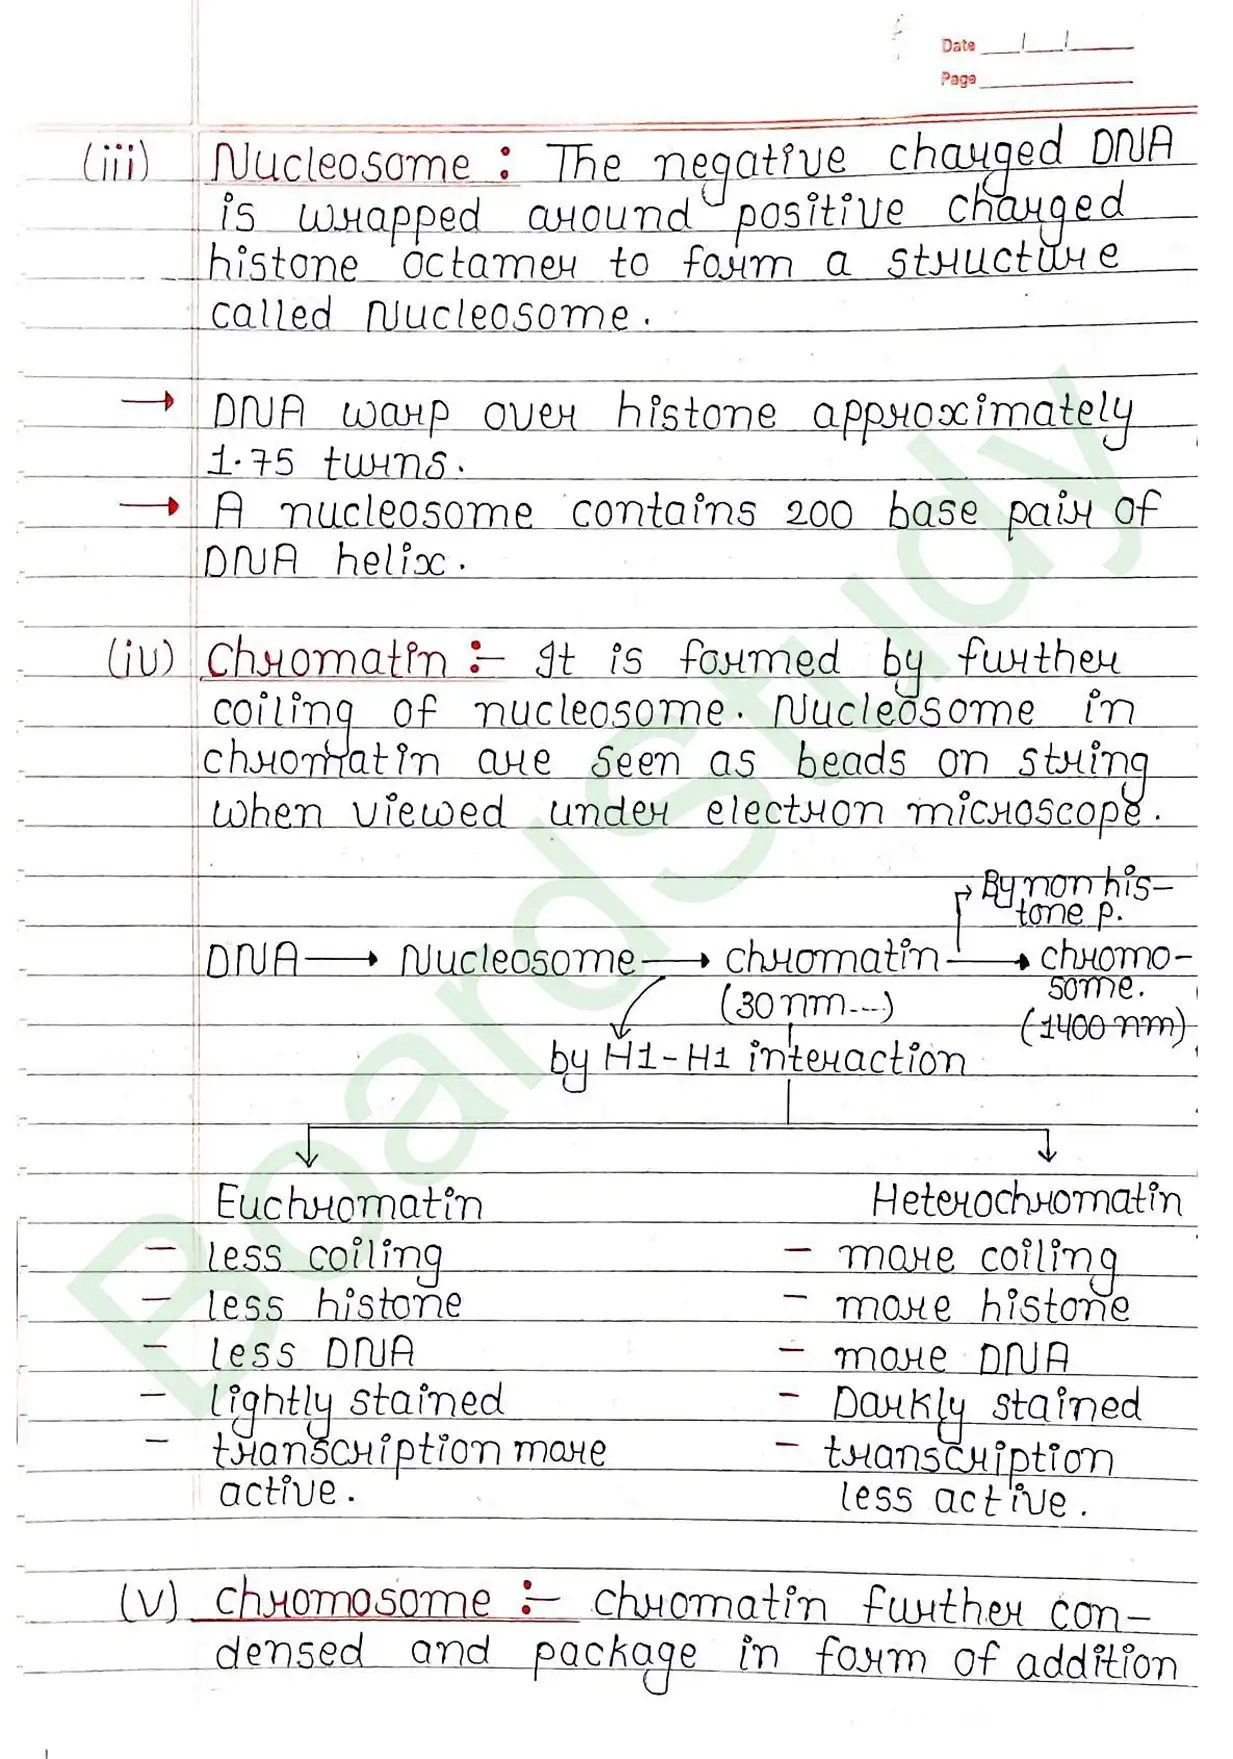 Date __/__/__
Page
(iii) Nucleosome : The negative charged DNA
is wrapped around positive charged
histone octamer to form a structure
called Nucleosome.
→ DNA warp over histone approximately
1.75 turns.
→ A nucleosome contains 200 base pair of
DNA helix.
(iv) Chromatin :- It is formed by further
coiling of nucleosome. Nucleosome in
chromatin are seen as beads on string
when viewed under electron microscope.
By non his-
tone p.
DNA → Nucleosome → chromatin → chromo-
some.
(30 nm...)
(1400 nm)
by H1-H1 interaction
Euchromatin Heterochromatin
- less coiling - more coiling
- less histone - more histone
- less DNA - more DNA
- lightly stained - Darkly stained
- transcription more - transcription
active. less active.
(v) chromosome :- chromatin further con-
densed and package in form of addition
BoardStudy